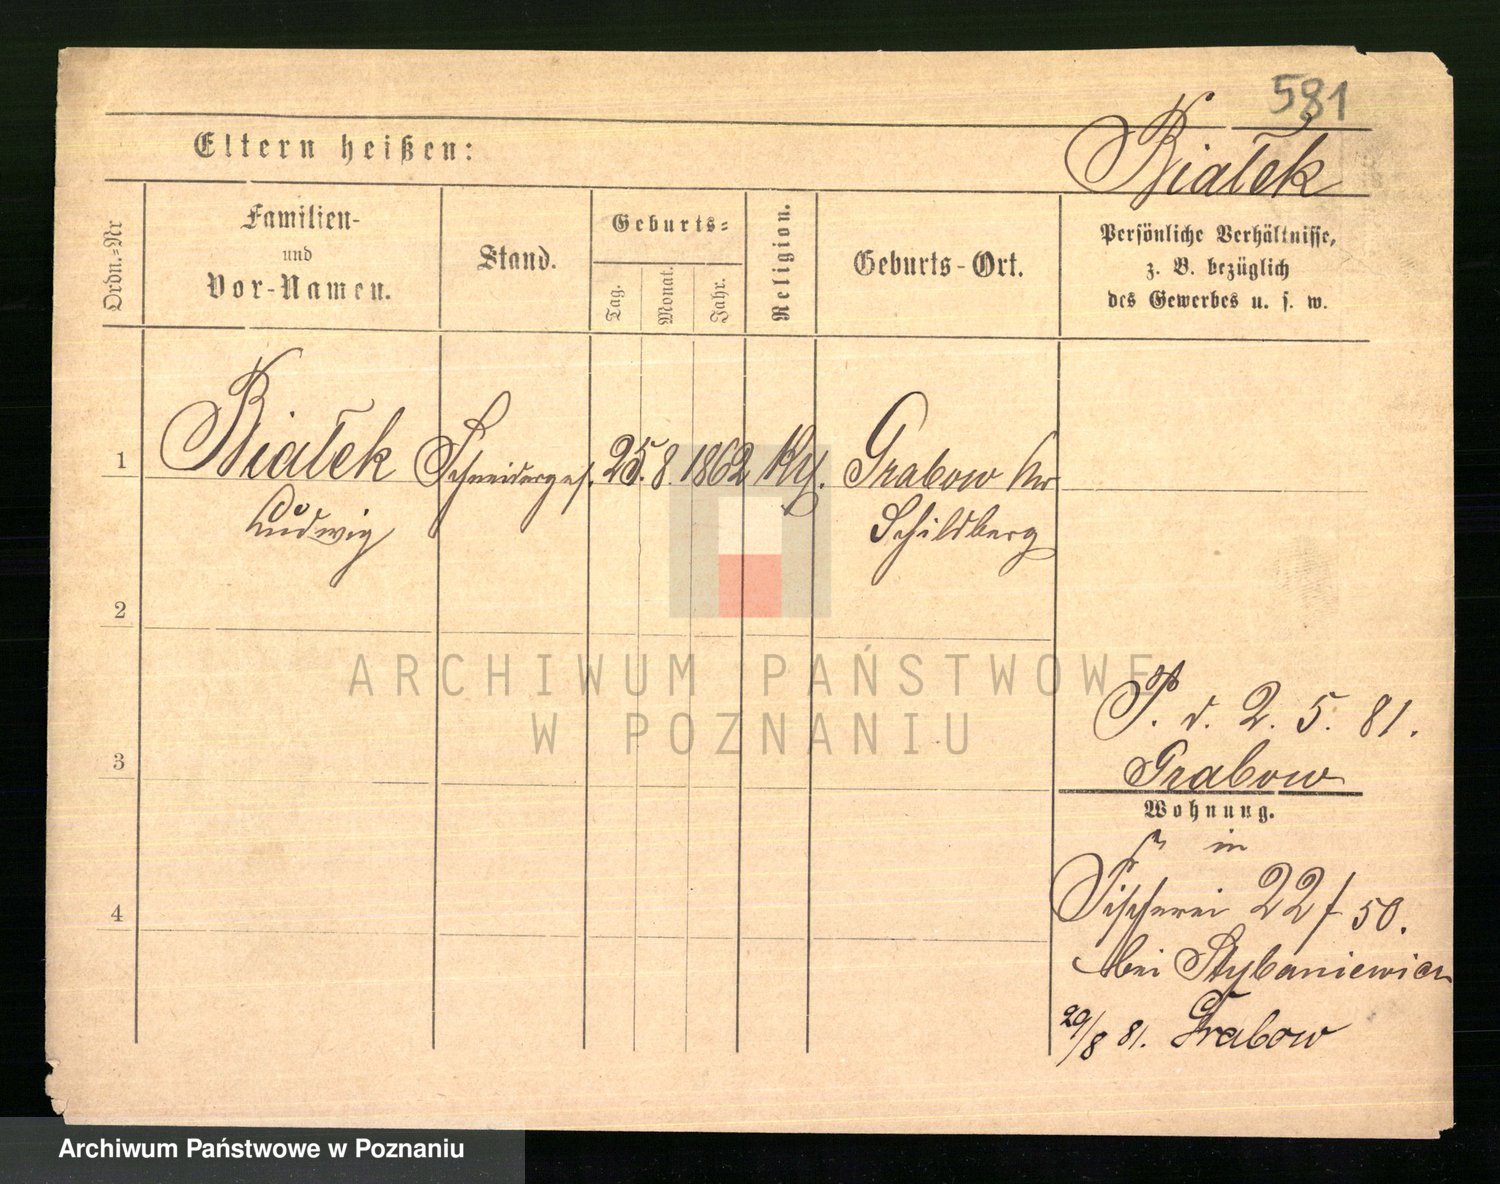 581
Białek
Eltern heißen:
Ordn.=Nr
Familien-
und
Vor-Namen.
Stand.
Geburts=
Tag.
Monat.
Jahr.
Religion.
Geburts-Ort.
Persönliche Verhältnisse,
z. B. bezüglich
des Gewerbes u. s. w.
1
Białek
Ludwig
Schneiderges.
25.
8.
1862
Grabow Kr
Schildberg
2
3
4
P. d. 2. 5. 81.
Grabow
Wohnung.
in
Fischerei 22/50.
bei Stybaniewicz
29/8 81. Grabow
ARCHIWUM PAŃSTWOWE
W POZNANIU
Archiwum Państwowe w Poznaniu